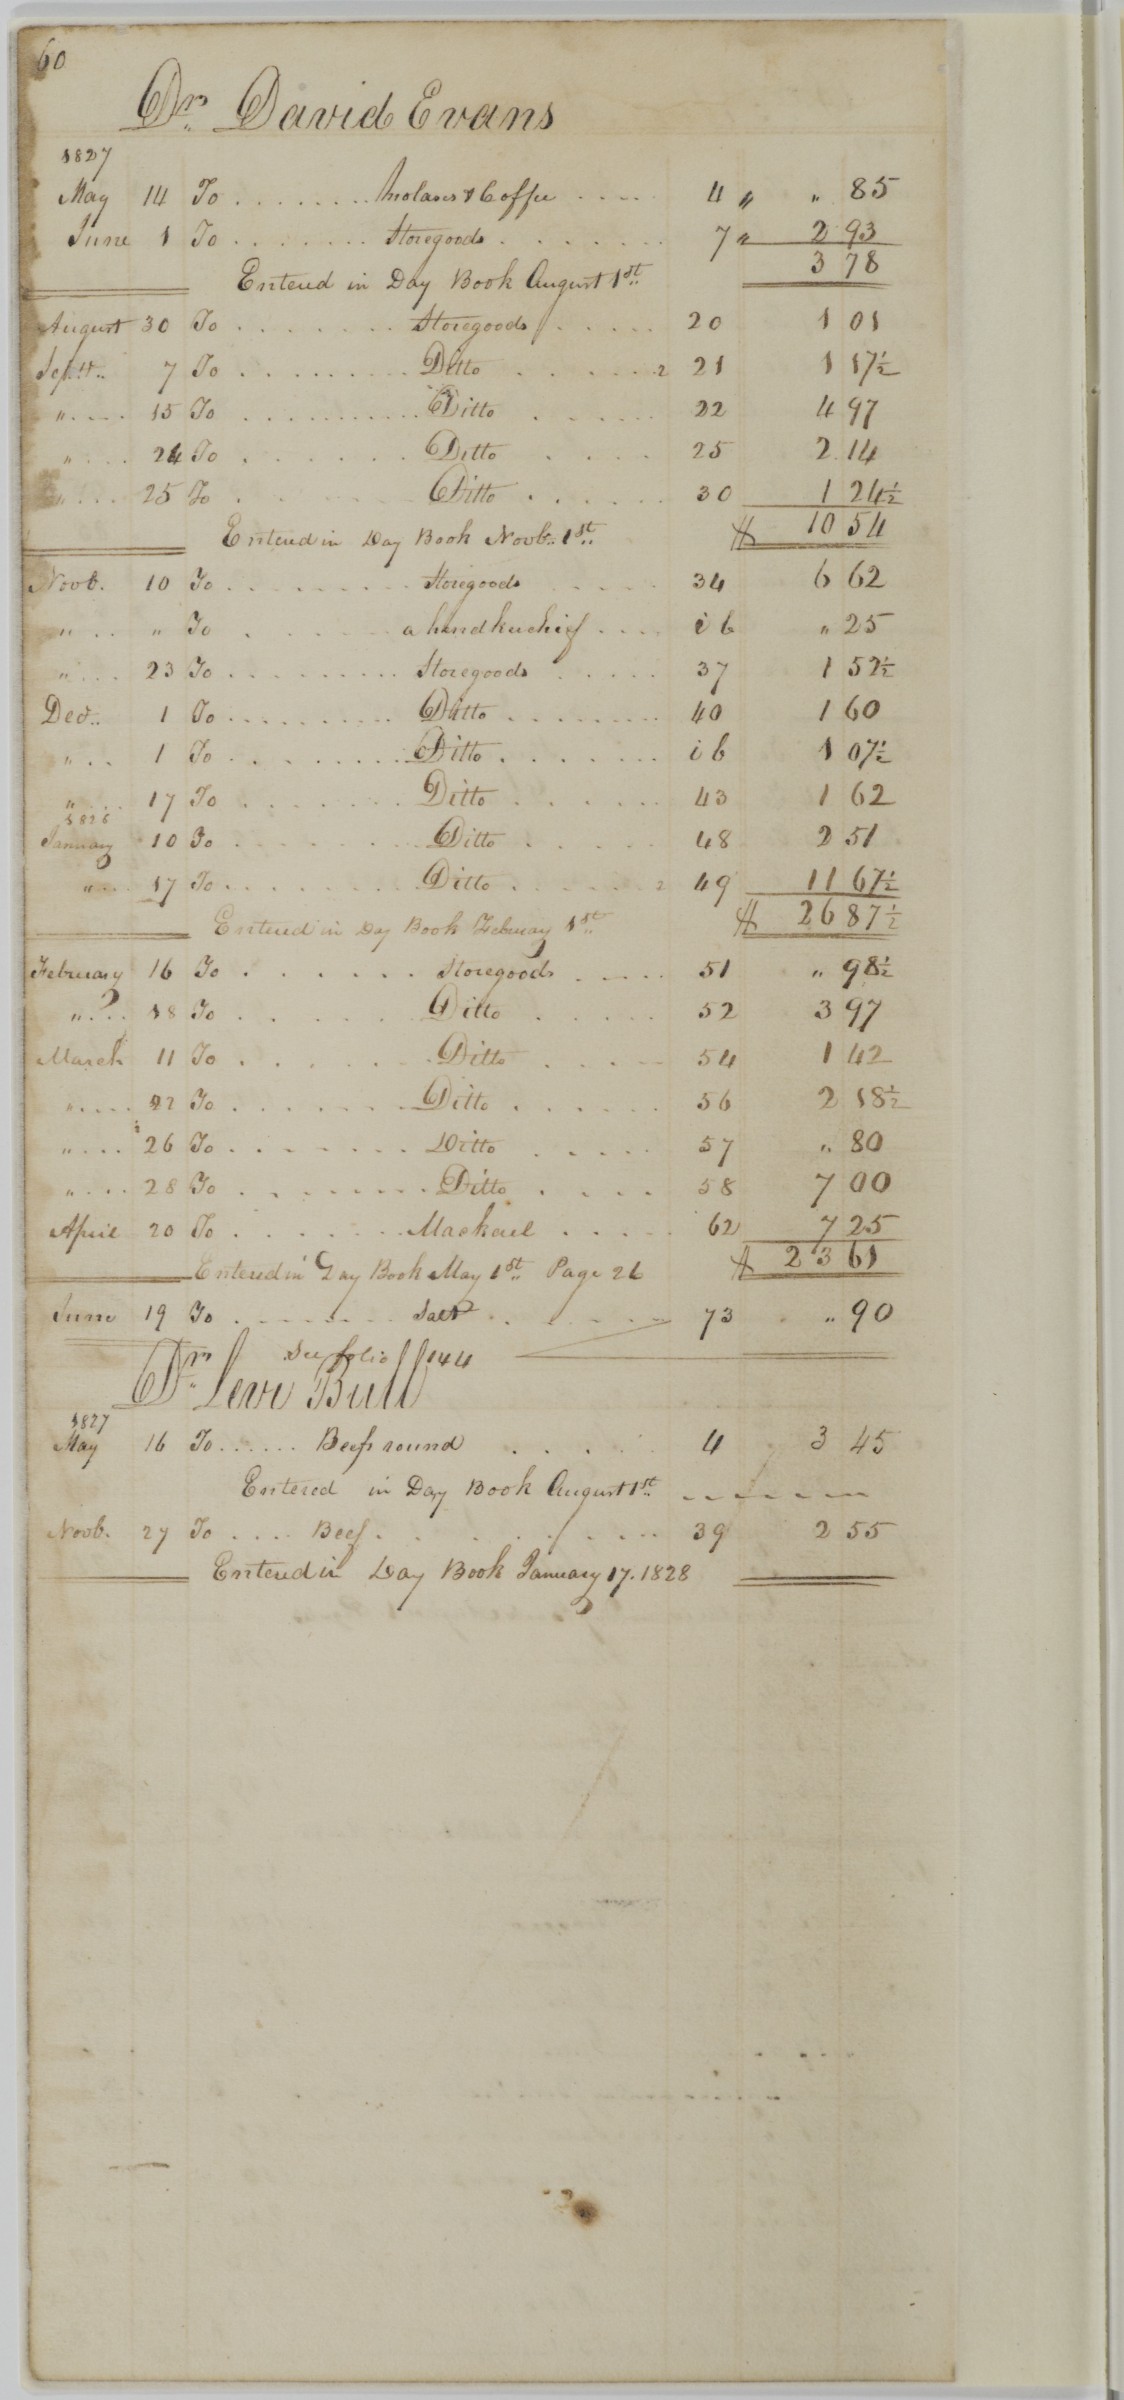 60
Dr. David Evans
1827
May 14 To ........ Molases & Coffee .... 4 " " 85
June 1 To ....... Storegoods ....... 7 " 2 93
3 78
Entered in Day Book August 1st
August 30 To ........ Storegoods ..... 20 1 01
Sept. 7 To ........ Ditto ..... 2 21 1 17½
" .... 15 To .......... Ditto ..... 22 4 97
" ... 24 To ....... Ditto .... 25 2 14
" ... 25 To ..... Ditto ...... 30 1 24½
Entered in Day Book Novb. 1st $ 10 54
Novb. 10 To ........ Storegoods .... 34 6 62
" .. " To ..... a handkuchief .... ib " 25
" .... 23 To ......... Storegoods ..... 37 1 52½
Decr. 1 To .......... Ditto ........ 40 1 60
" .. 1 To ......... Ditto ....... ib 1 07½
" .... 17 To ....... Ditto ...... 43 1 62
1828
January 10 To ....... Ditto ..... 48 2 51
" ... 17 To ........ Ditto ..... 2 49 11 67½
Entered in Day Book February 1st $ 26 87½
February 16 To ....... Storegoods ..... 51 " 98½
" ... 18 To ...... Ditto ..... 52 3 97
March 11 To ...... Ditto .... 54 1 42
" .... 22 To ....... Ditto ...... 56 2 18½
" .... 26 To ....... Ditto ..... 57 " 80
" .... 28 To ........ Ditto .... 58 7 00
April 20 To ....... Mackarel ..... 62 7 25
Entered in Day Book May 1st Page 26 $ 23 61
June 19 To ....... Salt ...... 73 " 90
See folio 144
Dr. Levi Bull
1827
May 16 To ...... Beef round ..... 4 3 45
Entered in Day Book August 1st
Novb. 27 To .... Beef ........ 39 2 55
Entered in Day Book January 17. 1828